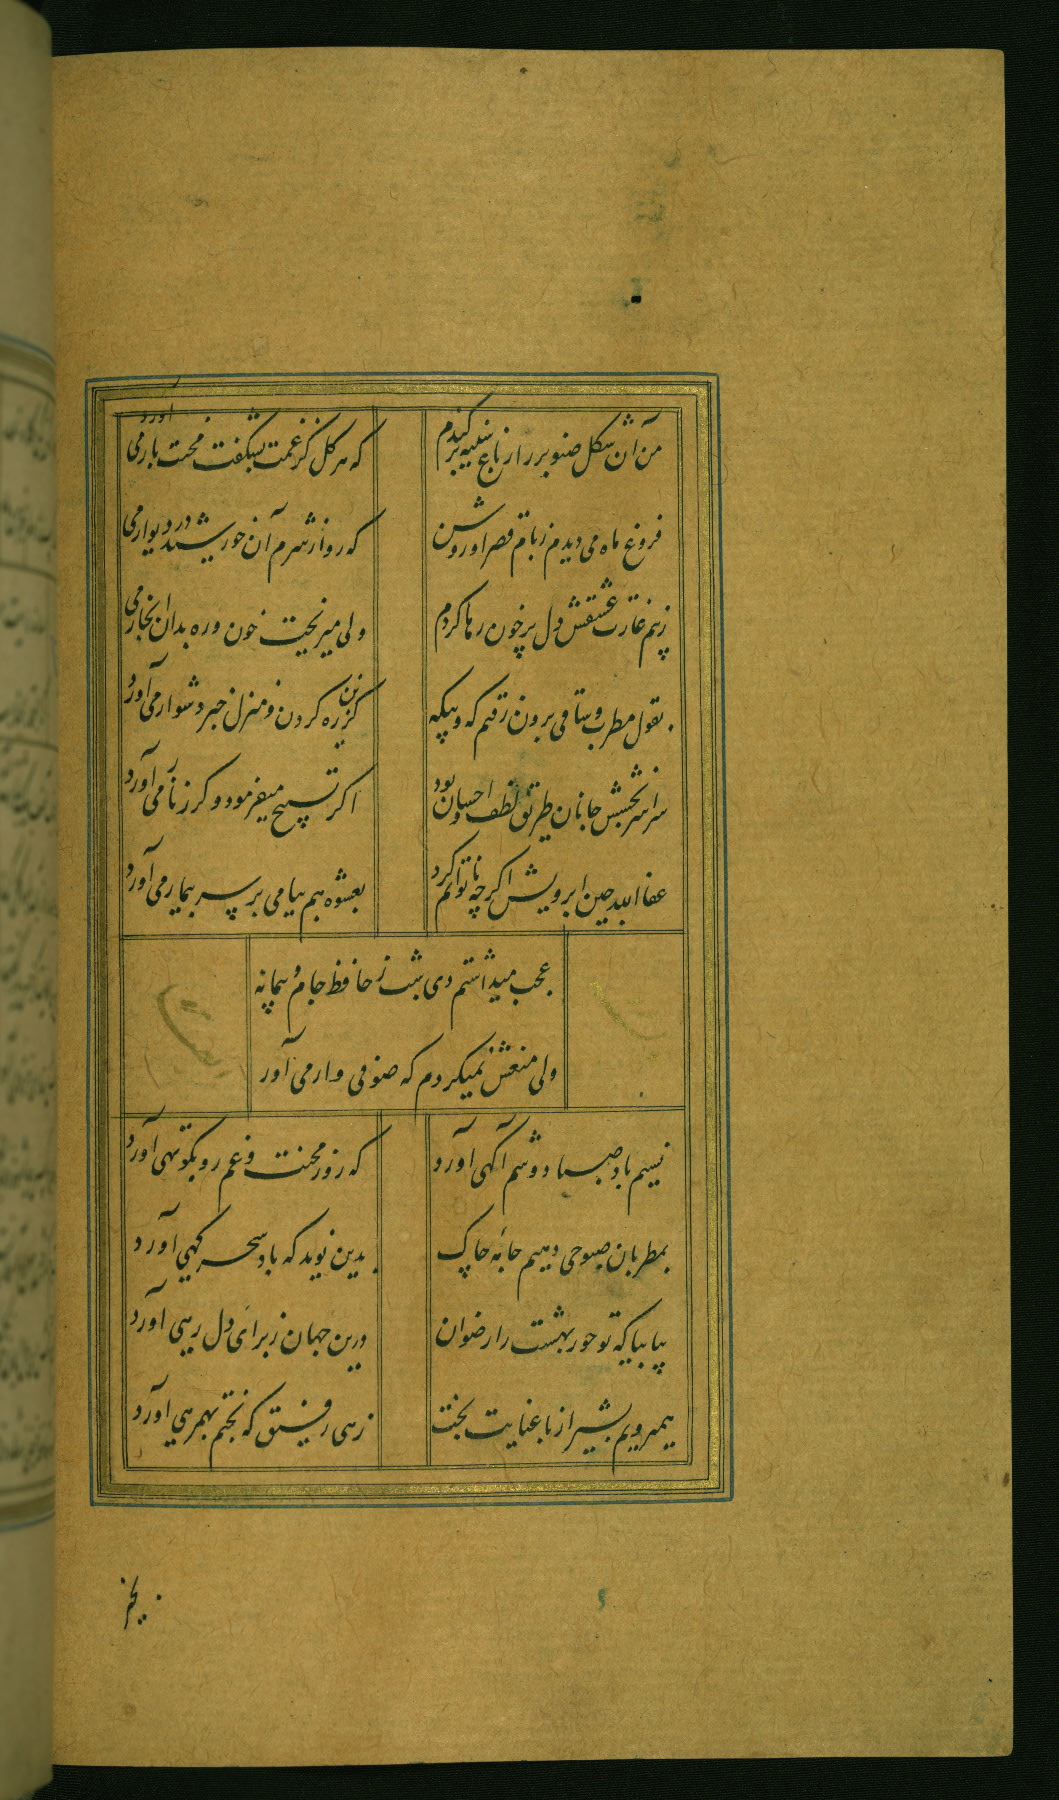 من آن شکل صنوبر را ز باغ سینه برکندم
که هر گل کز غمت بشکفت محنت بار می آورد
فروغ ماه می دیدم ز بام قصر او روشن
که رو از شرم آن خورشید در دیوار می
ز بیم غارت عشقش دل پر خون رها کردم
ولی میریخت خون و ره بدان هنجار می
بقول مطرب و ساقی برون رفتم که و بیکه
کزین ره کردن و منزل خبر دشوار می آورد
سراسر بخشش جانان طریق لطف و احسان بود
اگر تسبیح میفرمود و گر زنار می آورد
عفا الله چین ابرویش اگر چه ناتوانم کرد
بعشوه هم پیامی بر سر بیمار می آورد
عجب میداشتم دی شب ز حافظ جام و پیمانه
ولی منعش نمیکردم که صوفی وار می آورد
نسیم باد صبا دوشم آگهی آورد
که روز محنت و غم رو بکوتهی آورد
بمطربان صبوحی دهیم جامه چاک
بدین نوید که باد سحرگهی آورد
بیا بیا که تو حور بهشت را رضوان
درین جهان ز برای دل رهی آورد
همی رویم بشیراز با عنایت بخت
زهی رفیق که بختم بهمرهی آورد